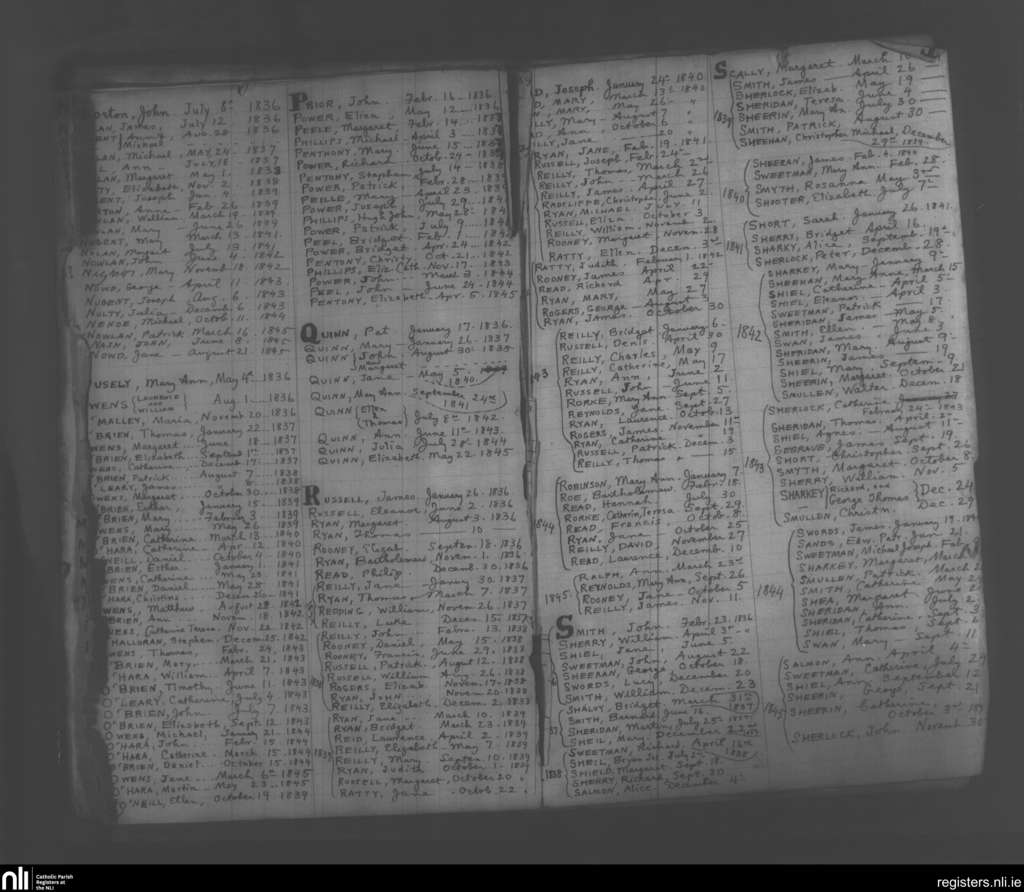 orton, John July 8th 1836
LAN, James, July 12 1836
ENT, Aug. 28 1836
Michael
LAN, Michael, MAY 24 - 1837
L, Ann, July, 18 - 1837
LAN, Margaret May 1. 1838
TY, Elizabeth, Nov. 2 1838
ENT, Joseph 1839
Anne Feb. 26 1839
LAN, William March 19 - 1839
LAN, Mary June 26 1839
Mary March 13 1841
Margaret July 13 1841
NOWLAN, John June 4 1842
Mary Novemb. 18 1842
NOWD, George April 11 1843
NUGENT, Joseph Aug. 6 1843
NULTY, Julia Decemb. 6 1843
Michael, Octob. 11. 1844
NOWLAN, Patrick March 16. 1845
NAIN, JOHN, June 8. 1845
NOWD, Jane August 21 1845
USELY, Mary Ann, May 4th 1836
WENS {LAURENCE and WILLIAM} Aug 1 1836
O'MALLEY, Maria, Novemb. 20 1836
BRIEN, Thomas, January 22 1837
WENS, Margaret June 18 1837
BRIEN, Elizabeth, Septem. 1st 1837
WENS, Catherine, Decemb. 17 1837
BRIEN, Patrick August 1838
LEARY, James
OWENS, Margaret, October 30 1838
BRIEN, Esther, January 15 1839
BRIEN, Mary February 3 1839
WENS, Mary May 26 1839
BRIEN, Catherine March 13 1840
O'HARA, Catherine Apr. 12. 1840
NEILL, Daniel, October 4 1840
BRIEN, Esther January 1 1841
WENS, Catherine May 23 1841
BRIEN, Daniel May 28 1841
HARA, Christine Decem 20 1841
WENS, Matthew August 28 1842
BRIEN, Ann Novem. 18 1842
Catherine Teresa. Nov. 22 1842
HALLORAN, Stephen Decem. 25. 1842
WENS, Thomas, Febr. 24. 1843
O'BRIEN, Mary March 21. 1843
O'HARA, William April 7 1843
O'BRIEN, Timothy June 11 1843
O'LEARY, Catherine July 4 1843
O'BRIEN, John July 7 1843
O'BRIEN, Elizabeth Sept. 12 1843
OWENS, Michael, January 21 1844
O'HARA, John Febr. 15 1844
O'HARA, Catherine March 15 1844
O'BRIEN, Daniel October 15 1844
OWENS, Jane March 6th 1845
O'HARA, Martin May 23 1845
O'NEILL, Ellen, October 19 1839
PRIOR, John Febr. 16 1836
POWER, Eliza May 12 1836
PEELE, Margaret Febr. 14
PHILLIPS, Michael April 3
PENTHONY, Mary June 15
POWER, Richard October 24
PENTONY, Stephen July 14
POWER, Patrick Febr. 28
PEILLE, Mary April 23. 1839
POWER, Joseph July 29
PHILLIPS, Hugh John May 28
POWER, Patrick July 9
PEEL, Bridget Feb. 1 1842
POWER, Bridget Apr. 24 1842
PENTONY, Christy Oct. 21. 1842
PHILLIPS, Eliz. Cath. Nov. 17 1843
POWER, John March 3 1844
PEEL, John June 24 1844
PENTONY, Elizabeth Apr. 5. 1845
QUINN, Pat January 17. 1836.
QUINN, Mary January 26. 1837
QUINN {John and Margaret August 30 1835
QUINN, Jane May 5. 1840.
QUINN, Mary Ann, September 24th 1841
QUINN {Ellen Thomas} July 8th 1842.
QUINN, Ann June 11th 1843.
QUINN, Julia July 28th 1844
QUINN, Elizabeth, May 22 1845
RUSSELL, James January 26. 1836
RUSSELL, Eleanor June 2. 1836
RYAN, Margaret August 3. 1836
RYAN, Thomas 10
ROONEY, Septem. 18. 1836
RYAN, Bartholomew Novem. 1. 1836
READ, Philip Decemb. 30. 1836
REILLY, Jane January 30. 1837
RYAN, Thomas March 7. 1837
REDDING, William, Novem 26. 1837
REILLY, Luke Decem. 15. 1837
REILLY, John Febru. 13. 1838
ROONEY, Daniel May 15. 1838
ROONEY, Francis, June 29. 1838
RUSSELL, Patrick, August 12. 1838
RUSSELL, William Aug 26. 1838
ROGERS, Elizab. Novem. 17. 1838
RYAN, John Novem 20. 1838
REILLY, Elizabeth, Decem. 2. 1838
RYAN, Jane March 10. 1839
RYAN, Bridget March 23. 1839
REID, Lawrence April 2. 1839
REILLY, Elizabeth May 7. 1839
REILLY, Mary Septem 10. 1839
RYAN, Judith October 1. 1839
RUSSELL, Margaret, October 20 "
RATTY, Jane Octob. 22 "
D, Joseph January 24th 1840
D, MARY, March 13th 1840
N, MARY, May 26
LLY, Mary August 7 "
Ann October 6 "
ILLY, Jane 20 "
RYAN, JANE, Feb. 19. 1841.
RUSSELL, Joseph, Feb. 24th
REILLY, Thomas, March 2nd
REILLY, John March 26
REILLY, James. April 27
RADCLIFFE, Christopher, June 2
RYAN, MICHAEL July 11
RUSSELL, Ellen October 3
REILLY, William. Novemb. 2
ROONEY, Margaret Novem. 28
RATTY, Ellen Decem. 3rd
RATTY, Judith February 1. 1842
ROONEY, James April 22nd
READ, Richard Apr 29
RYAN, MARY, May 27
ROGERS, George August 3
RYAN, James October 30
REILLY, Bridget January 6.
RUSSELL, Denis. April 30
REILLY, Charles, May 9
REILLY, Catherine, May 17
RYAN, Ann, June 2
RUSSELL, John June 11
RORKE, Mary Ann Sept. 5
REYNOLDS, Jane Sept. 27
RYAN, Laurence Octob. 13
ROGERS, James, November 11th
RYAN, Catherine 19
RUSSELL, Patrick. Decem. 3
REILLY, Thomas " 15
ROBINSON, Mary Ann, January 7.
ROE, Bartholomew, Febr. 18.
READ, Hannah July 30
RORKE, Catherin, Teresa Sept. 29
READ, Francis Octob. 8
RYAN, Jane October 25
REILLY, DAVID November 27
READ, Laurence, Decemb. 10
1844
RALPH, Ann. March 23rd
REYNOLDS, Mary Ann, Sept. 26
ROONEY, Jane October 5
REILLY, James Nov. 11.
1845
SMITH, John Febr. 23. 1836
SHERRY, William April 3rd
SHIEL, Jane June 5
SWEETMAN, John, August 22
SHEERAN, George October 18.
SWORDS, Lucy December 20
SMITH, William, Decem. 23
SHALOY, Bridget March 31st 1837
SMITH, Barnaby June
SHERIDAN, Martin July 25
SHEIL, Mary December
SWEETMAN, Richard, April 16th
SHEIL, Bryan Jos. July 2nd 1838
SHIELD, Margaret, Sept. 18
SHERRY, Richard, Sept. 30
SALMON, Alice December 4th
1838
SCALLY, Margaret March 10
SMITH, James April 26
SHERLOCK, Elizab. May 19
SHERIDAN, Teresa June 4
SHEERIN, Mary Ann July 30
SMITH, PATRICK, August 30
SHEEHAN, Christopher Michael, December 29th 1839.
1839
SHEERAN, James Feb. 4. 1840
SWEETMAN, Mary Ann, Feb. 28.
SMYTH, Rosanna May 3rd
SHOOTER, Elizabeth July 7th
1840
SHORT, Sarah. January 26. 1841.
SHERRY, Bridget April 16.
SHARKY, Alice, Septemb. 19th
SHERLOCK, Peter, December 28.
1841
SHARKEY, Mary January 9th
SHEEHAN, Mary Anne, March 15
SHIEL, Catherine April 5th
SHIEL, Eleanor April 3
SWEETMAN, Patrick 17
SHERIDAN, James May 5.
SMITH, Ellen May 8
SWAN, James June 3
SHERIDAN, Mary August 9th
SHEERIN, James 19
SHIEL, Mary Septem. 9
SHEERIN, Margaret October 21
SMULLEN, Walter. Decem. 18
1842
SHERLOCK, Catherine January 27 Februar. 24th 1843
SHERIDAN, Thomas. April. 2nd
SHIEL, Agnes. August 11th
SEGRAVE, James Sept. 19.
SHORT, Christopher Sept. 26
SMYTH, Margaret October 8
SHERRY, William. Nov. 5
SHARKEY {Richard, and George Thomas} Dec. 24
SMULLEN, Christn. Dec. 29
1843
SWORDS, James January 19. 1844
SANDS, Edw. Pat. Jan. 21
SWEETMAN, Michael Joseph, Feb. 9
SHARKEY, Margaret, March
SMULLEN, Patrick. March 2
SMITH, Catherine May 2
SHEA, Margaret June
SHERIDAN, Ann July 2
SHERIDAN, Catherine
SHIEL, Thomas Sept. 6
SWAN, Mary Sept. 11
1844
SALMON, Ann, April 4th
SWEETMAN, Catherine, July 2
SHIEL, Ann, September 12
SHEERIN, George, Sept. 21
SHEERIN, Catherine October 3rd
SHERLOCK, John Novemb. 30
1845
nli
Catholic Parish
Registers at
the NLI
registers.nli.ie